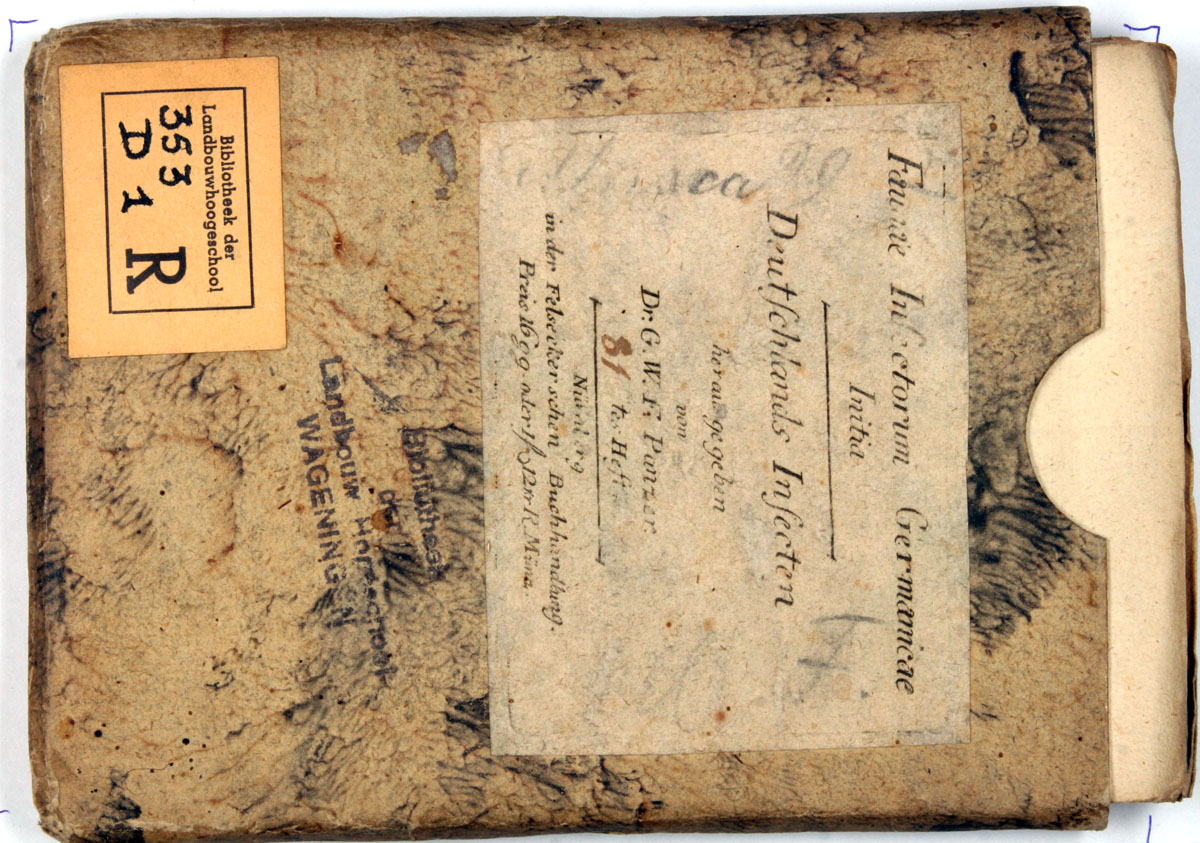 Faunae Insectorum Germanicae
Initia
Deutſchlands Inſecten
herausgegeben
von
Dr. G. W. F. Panzer.
81 tes Heft.
Nürnberg
in der Felseckerschen Buchhandlung.
Preis 16 gg oder 1 fl 12 kr R. Münz.
Bibliotheek der
Landbouwhoogeschool
353
D 1 R
Bibliotheek
der
Landbouw Hoogeschool
WAGENINGEN